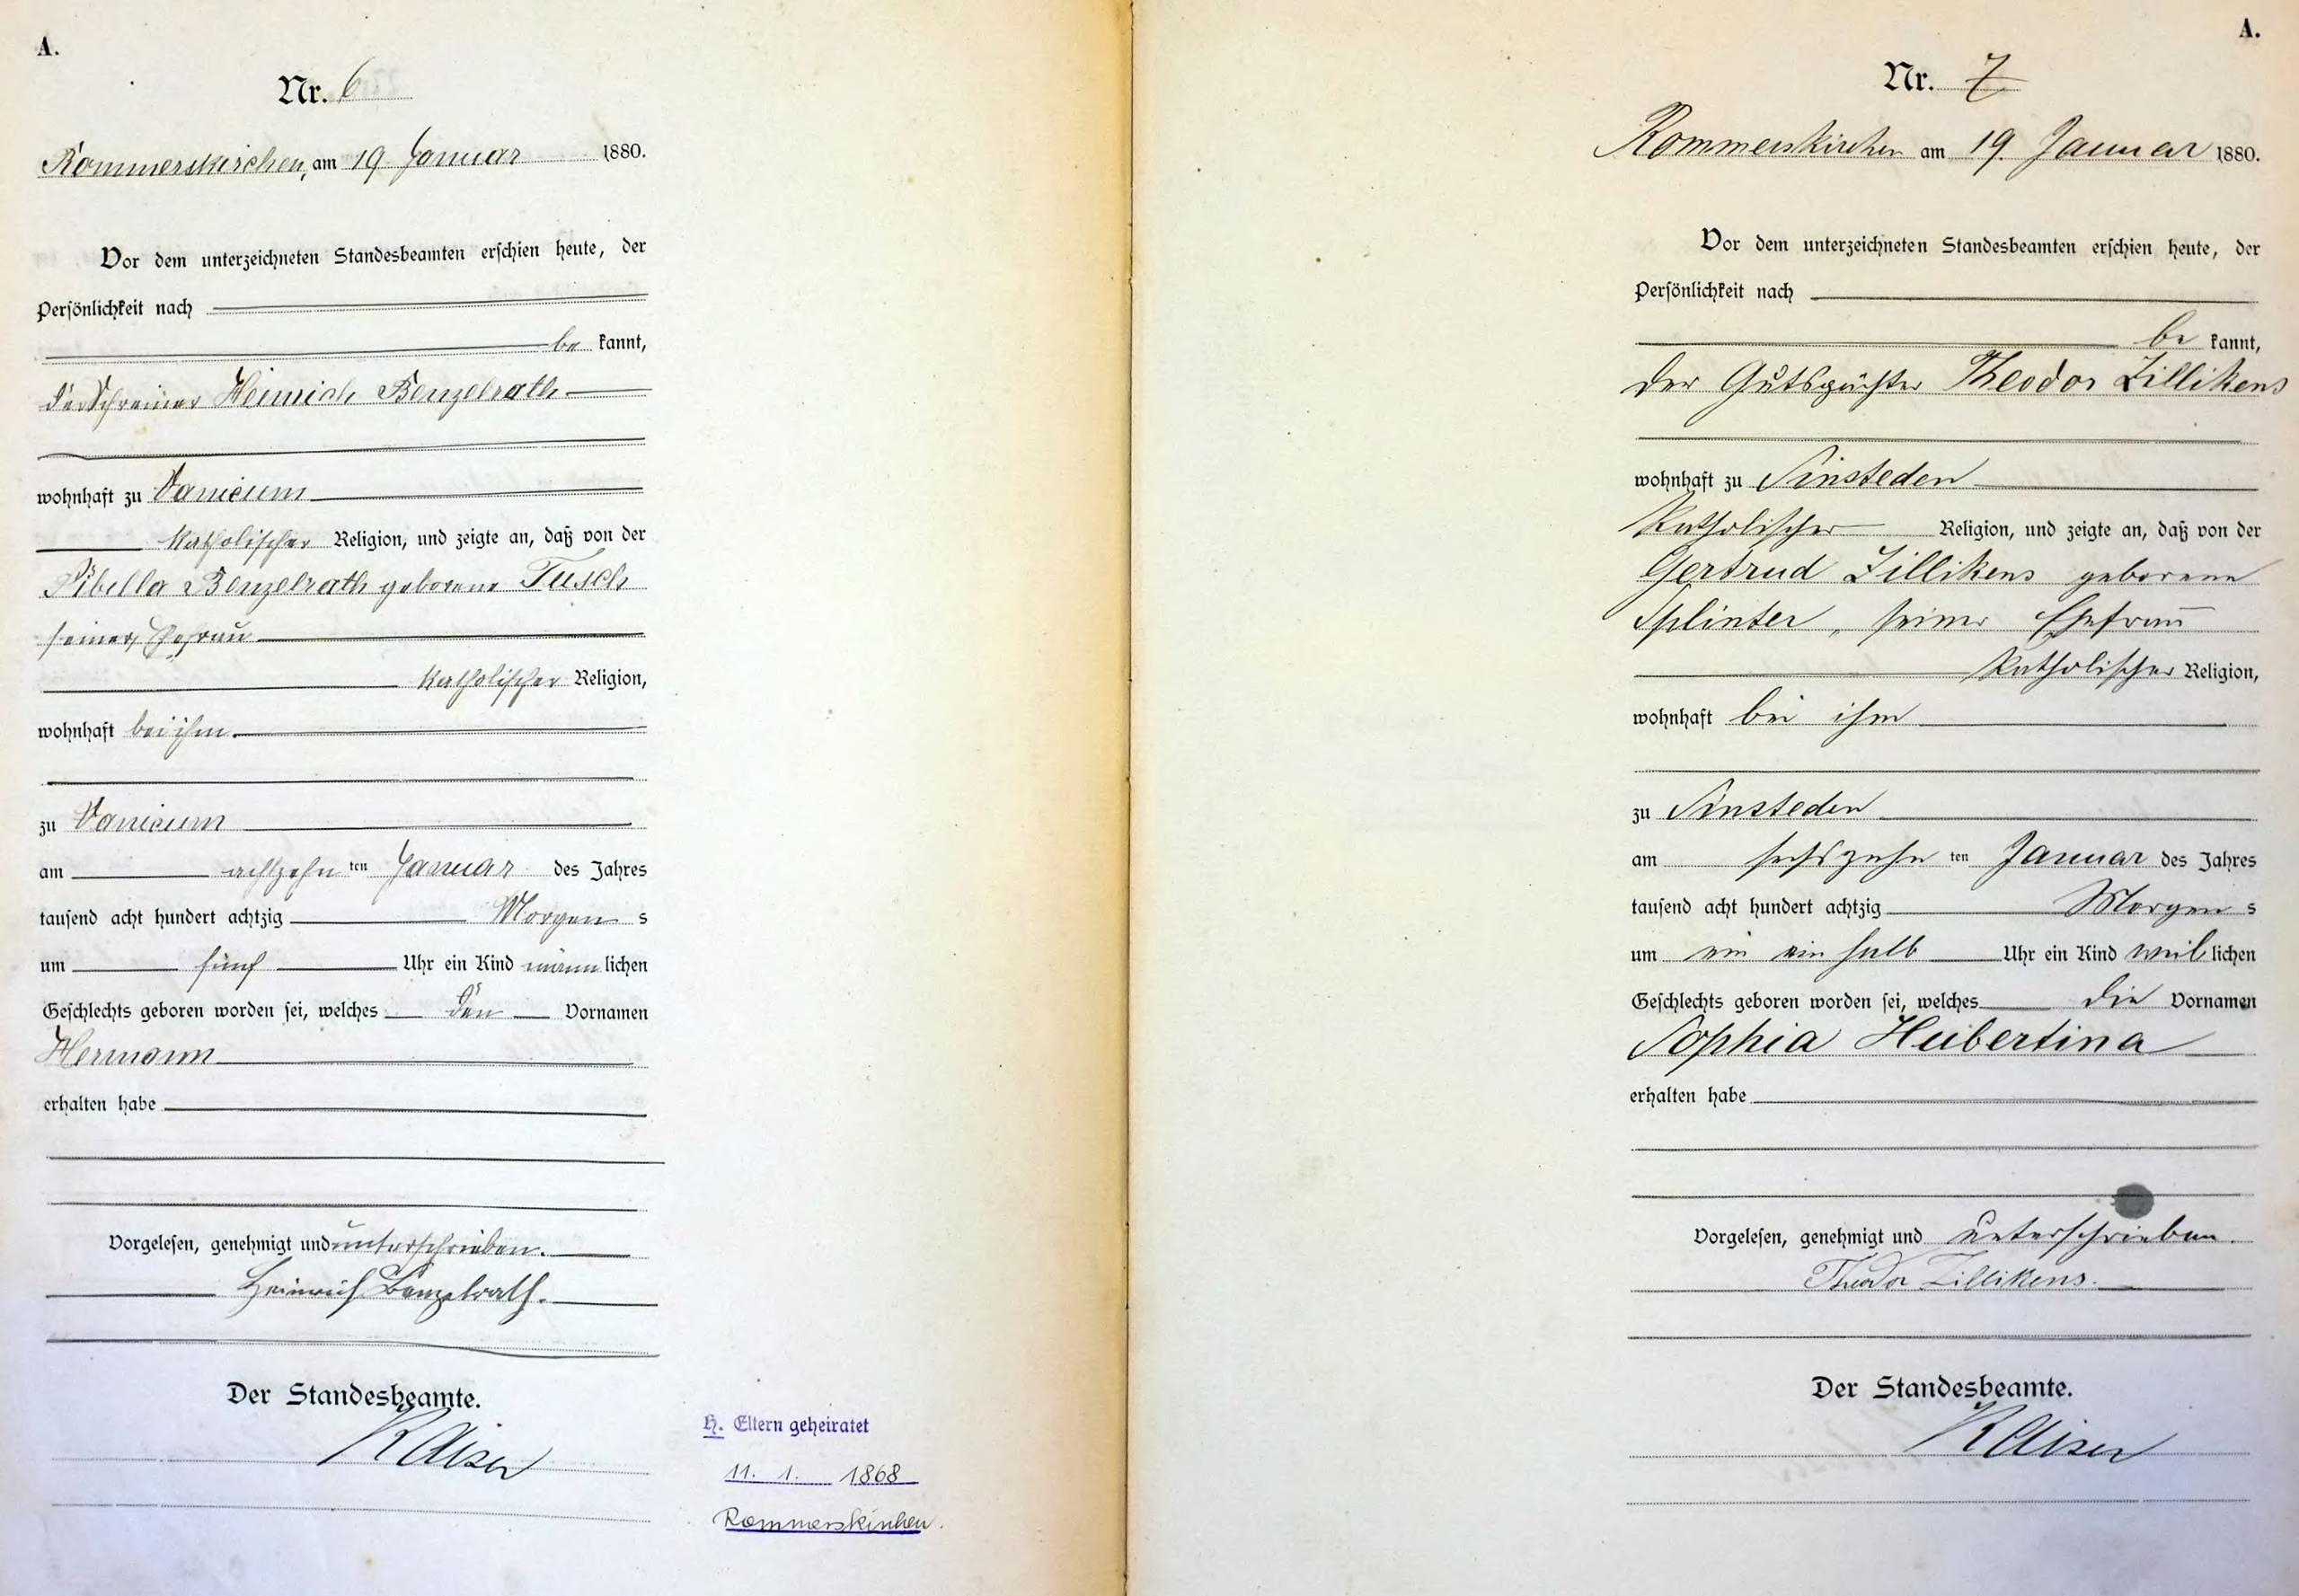 A.
Nr. 6
Rommerskirchen, am 19 Januar 1880.
Vor dem unterzeichneten Standesbeamten erschien heute, der
Persönlichkeit nach
be kannt,
der Schreiner Heinrich Benzelrath
wohnhaft zu Vanicum
katholischer Religion, und zeigte an, daß von der
Sibilla Benzelrath geborene Tusch
seiner Ehefrau
katholischer Religion,
wohnhaft bei ihm
zu Vanicum
am achtzehn ten Januar des Jahres
tausend acht hundert achtzig Morgen s
um fünf Uhr ein Kind männ lichen
Geschlechts geboren worden sei, welches den Vornamen
Hermann
erhalten habe
Vorgelesen, genehmigt und unterschrieben.
Heinrich Benzelrath.
Der Standesbeamte.
Kaiser
H. Eltern geheiratet
11. 1. 1868
Rommerskirchen.
A.
Nr. 7
Rommerskirchen am 19. Januar 1880.
Vor dem unterzeichneten Standesbeamten erschien heute, der
Persönlichkeit nach
be kannt,
der Gutspächter Theodor Zillikens
wohnhaft zu Sinsteden
katholischer Religion, und zeigte an, daß von der
Gertrud Zillikens geborene
Splinter, seiner Ehefrau
katholischer Religion,
wohnhaft bei ihm
zu Sinsteden
am sechszehn ten Januar des Jahres
tausend acht hundert achtzig Morgen s
um ein ein halb Uhr ein Kind weib lichen
Geschlechts geboren worden sei, welches die Vornamen
Sophia Hubertina
erhalten habe
Vorgelesen, genehmigt und unterschrieben.
Theodor Zillikens.
Der Standesbeamte.
Kaiser